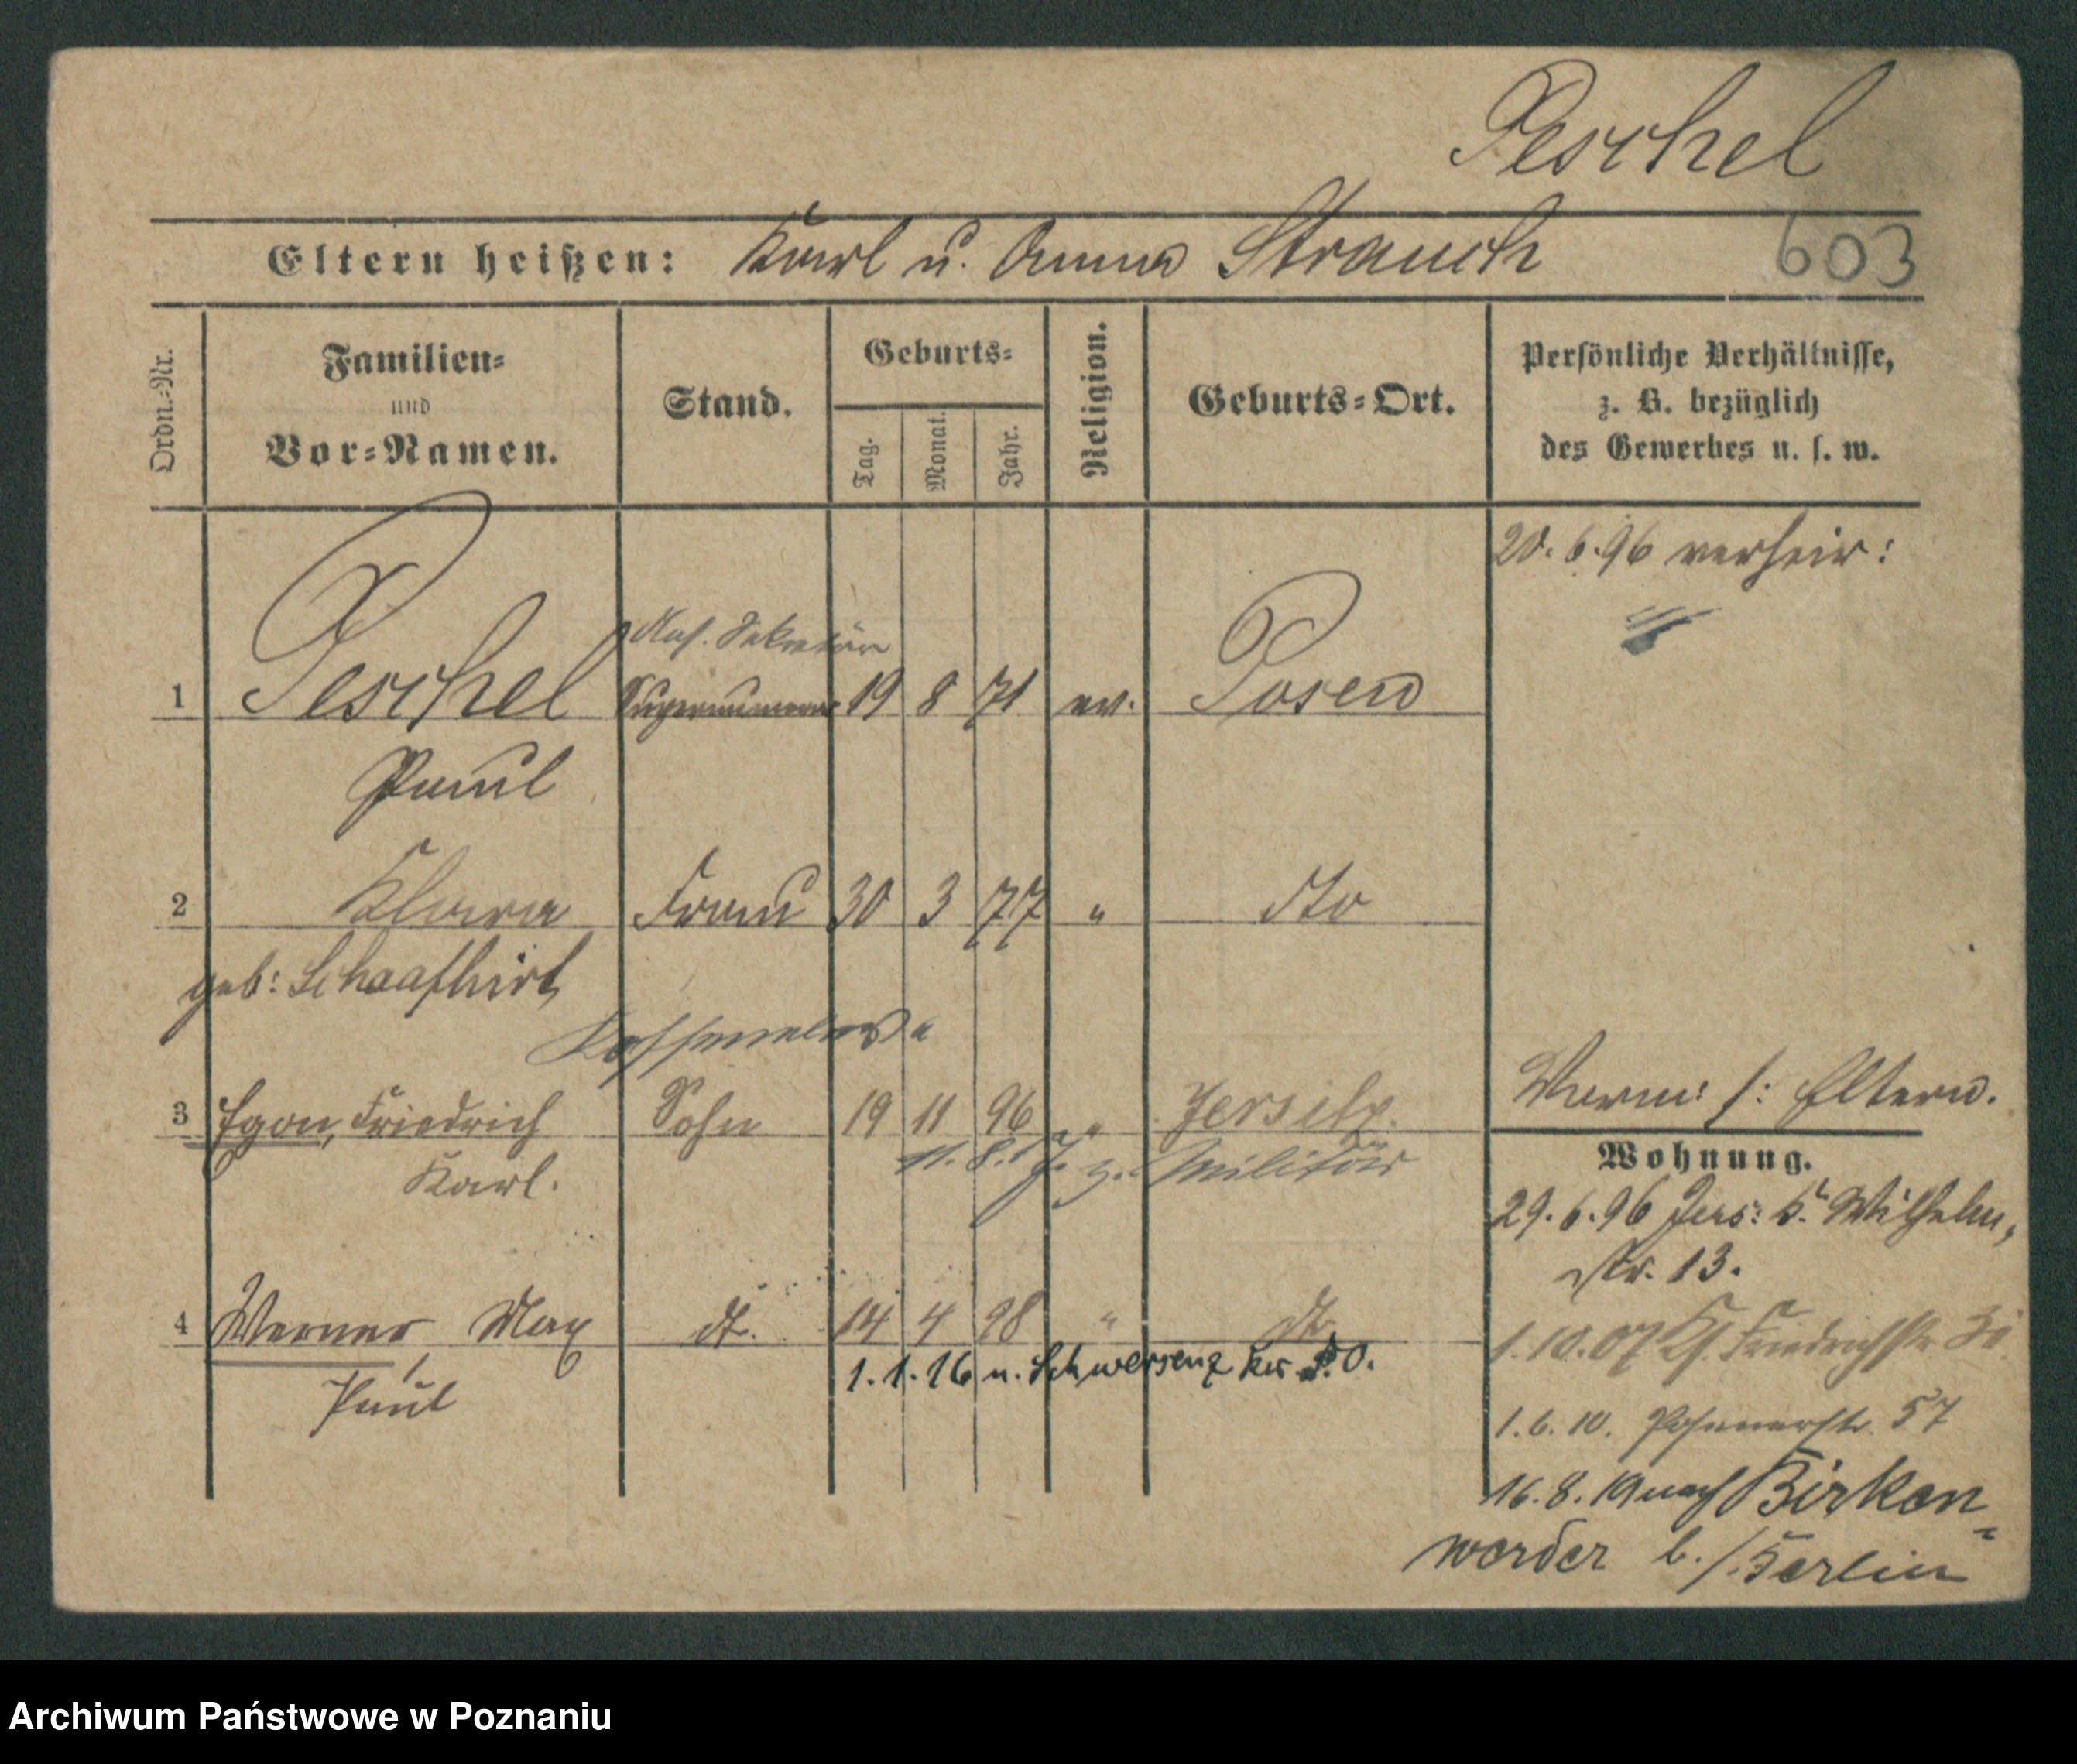 Peschel
Eltern heißen: Karl u. Anna Strauch 603
Ordn.-Nr.
Familien-
und
Vor-Namen.
Stand.
Geburts-
Tag.
Monat.
Jahr.
Religion.
Geburts-Ort.
Persönliche Verhältnisse,
z. B. bezüglich
des Gewerbes u. s. w.
20.6.96 verheir:
Sekretär
1 Peschel Supernumerar 19 8 71 ev. Posen
Paul
2 Klara Frau 30 3 77 " dto
geb: Schaafhirt
3 Egon, Friedrich Sohn 19 11 96 " Jersitz.
Karl.
11.8.17. z. Militär
Eltern.
Wohnung.
29.6.96 Jers: Wilhelm,
str. 13.
4 Werner, Max dt. 14 4 98 " dt.
Paul
1.1.16 n. Schwersenz
1.10.07 Friedrichstr
1.6.10. Posenerstr. 57
16.8.19 nach Birken=
werder b./Berlin
Archiwum Państwowe w Poznaniu